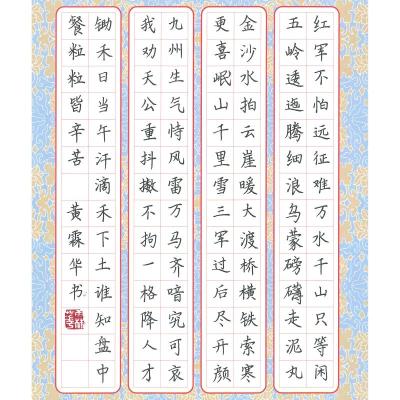 红军不怕远征难万水千山只等闲
五岭逶迤腾细浪乌蒙磅礴走泥丸
金沙水拍云崖暖大渡桥横铁索寒
更喜岷山千里雪三军过后尽开颜
九州生气恃风雷万马齐喑究可哀
我劝天公重抖擞不拘一格降人才
锄禾日当午汗滴禾下土谁知盘中
餐粒粒皆辛苦 黄霖华书